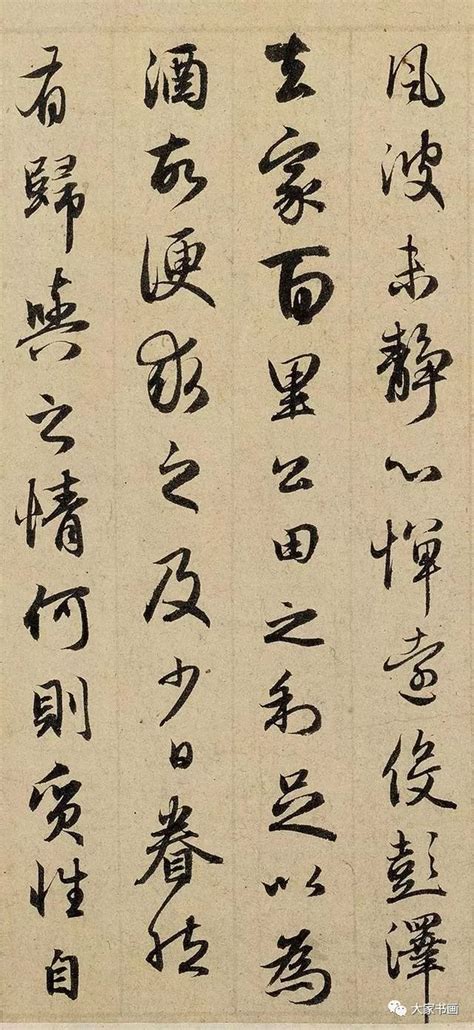 風波未靜心憚遠役彭澤
去家百里公田之利足以為
酒故便求之及少日眷然
有歸與之情何則質性自
大家书画